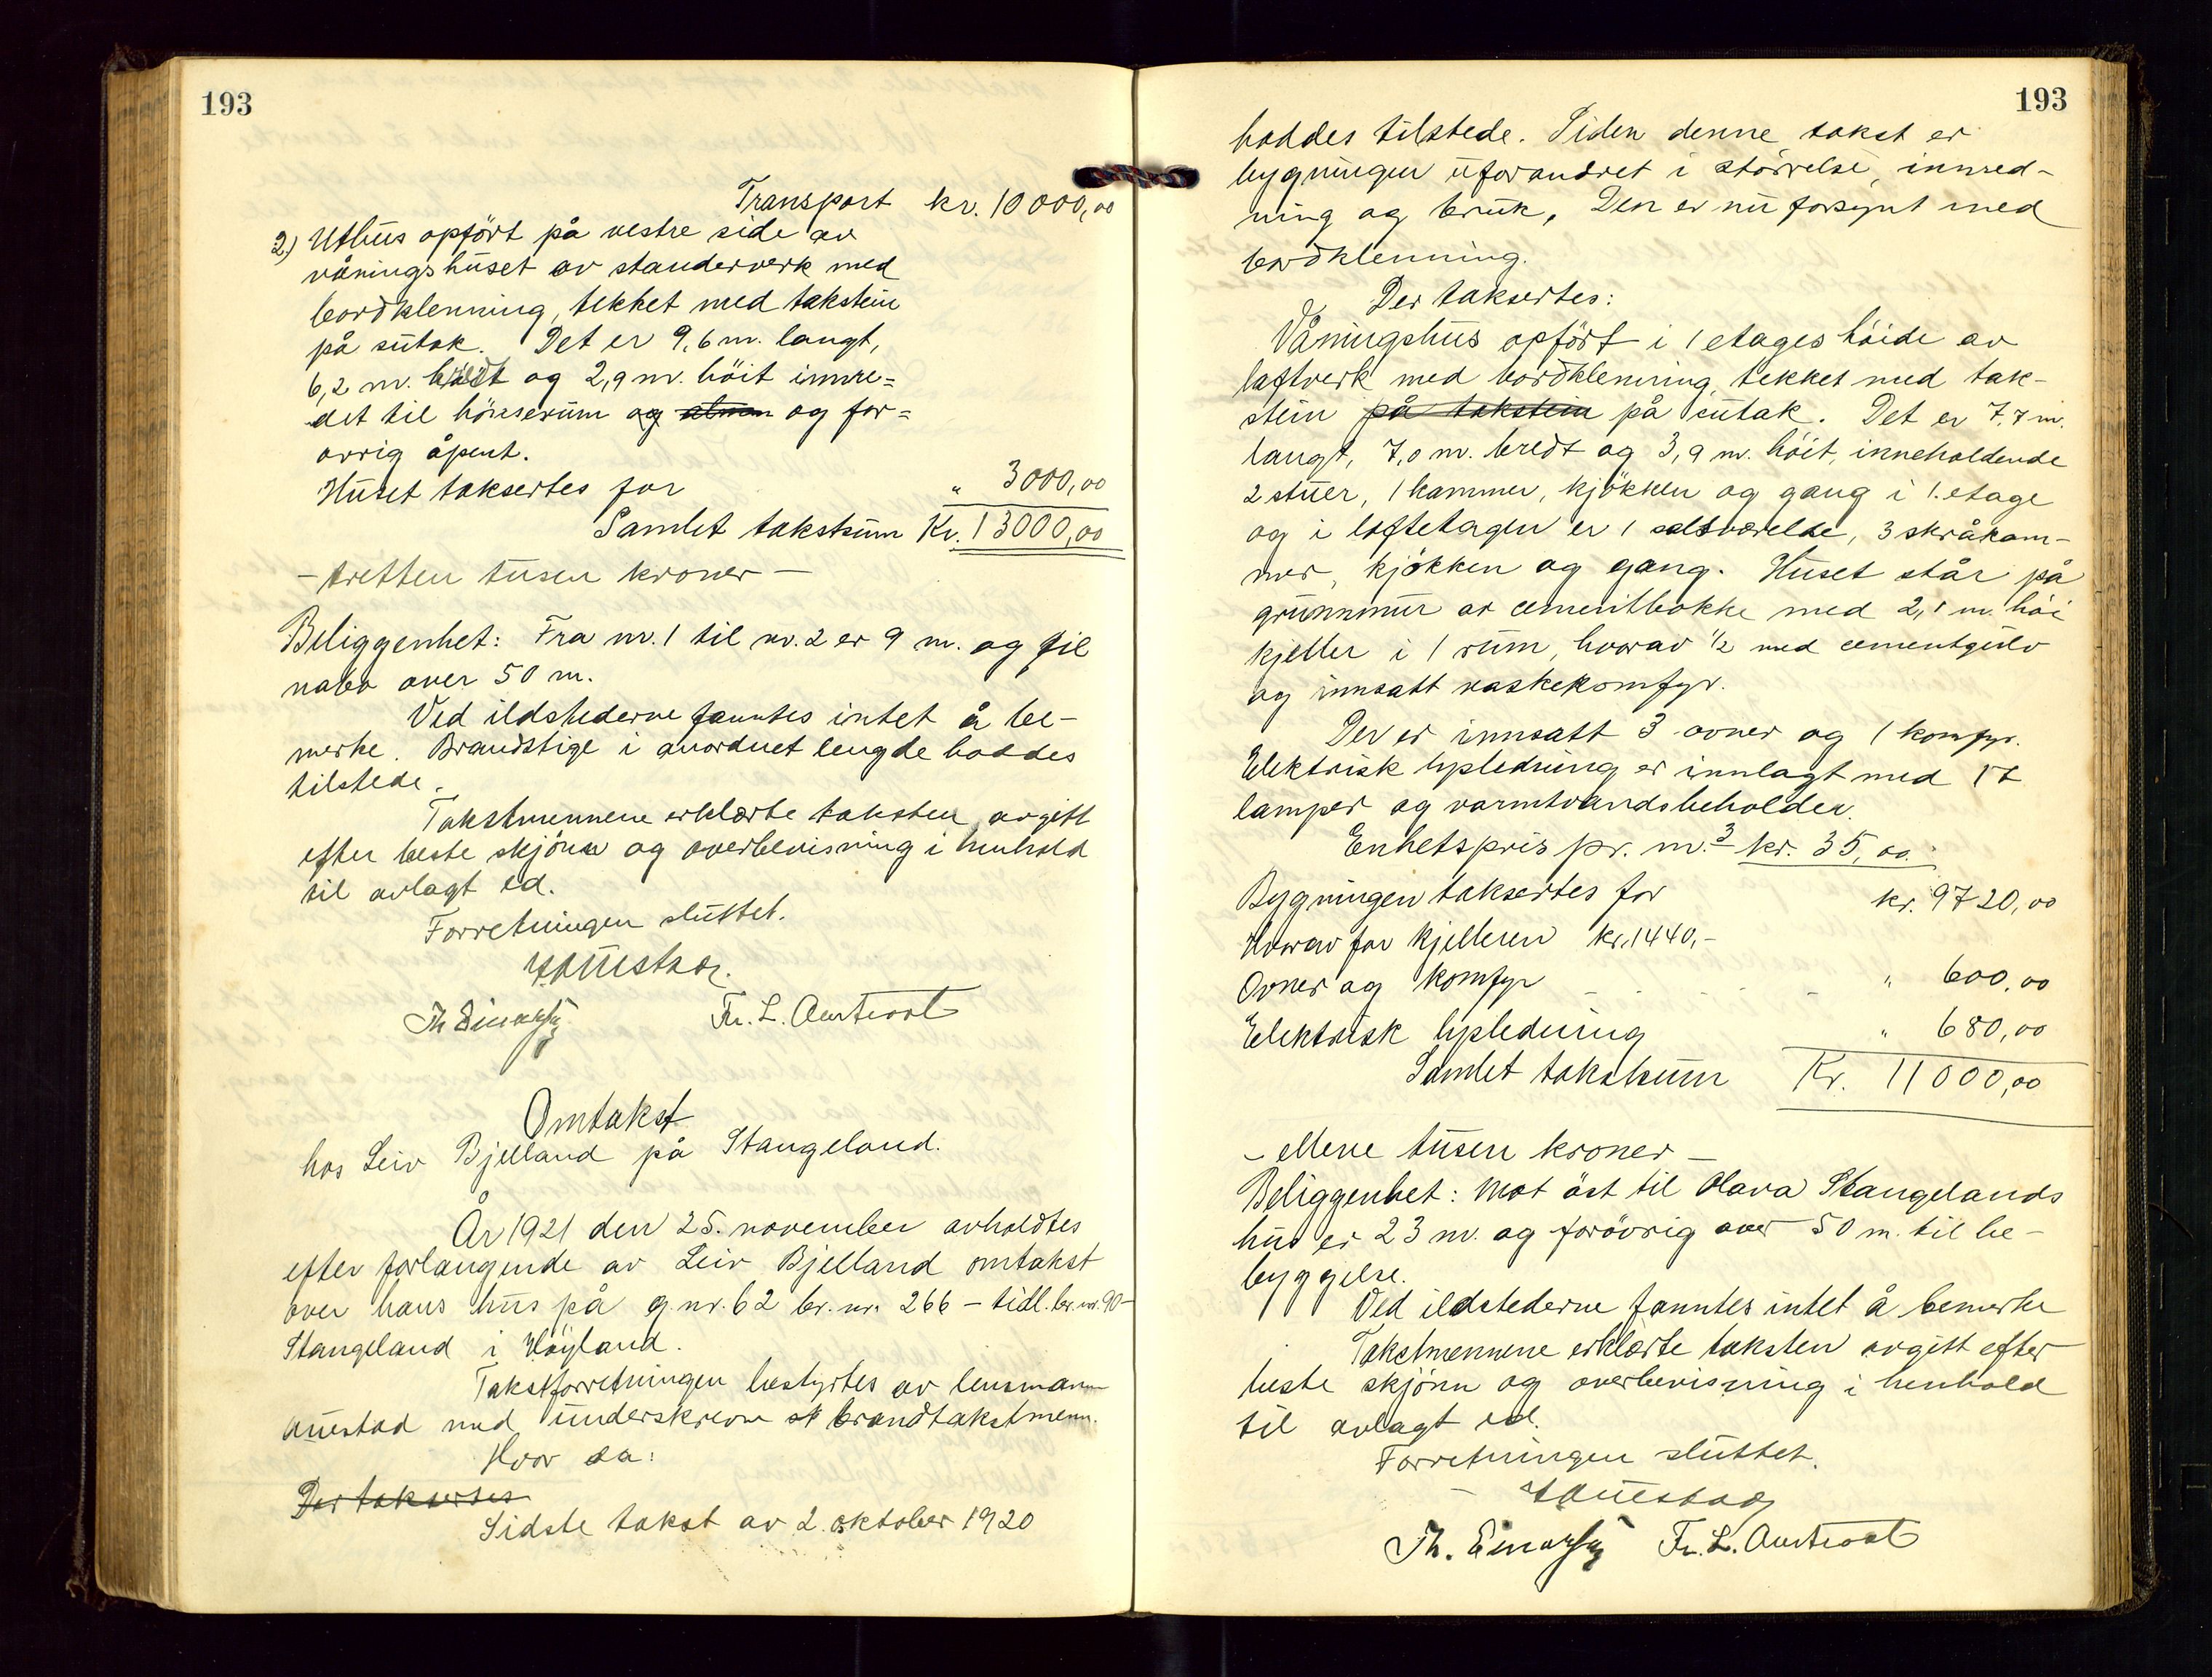 193
Transport kr. 10 000,00
2) Uthus opfört på vestre side av
våningshuset av standerverk med
bordklenning, tekket med takstein
på sutak. Det er 9,6 m. langt,
6,2 m. bredt og 2,9 m. höit innre=
det til hönserum og og for=
övrig åpent.
Huset taksertes for " 3000,00
Samlet takstsum Kr. 13000,00
- tretten tusen kroner -
Beliggenhet: Fra nr. 1 til nr. 2 er 9 m. og til
nabo over 50 m.
Ved ildstederne fanntes intet å be-
merke. Brandstige i anordnet lengde haddes
tilstede.
Takstmennene erklærte taksten avgitt
efter beste skjönn og overbevisning i henhold
til avlagt ed.
Forretningen sluttet.
Auestad.
Th. Fr. L. Austraat
Omtakst
hos Leiv Bjelland på Stangeland.
År 1921 den 25. november avholdtes
efter forlangende av Leiv Bjelland omtakst
over hans hus på g.nr. 62 br. nr. 266 - tidl. br. nr. 90 -
Stangeland i Höyland.
Takstforretningen bestyrtes av lensmann
Auestad med underskrevne brandtakstmenn.
Hvor da:
Der taksertes
Sidste takst av 2. oktober 1920
193
haddes tilstede. Siden denne takst er
bygningen uforandret i störrelse, innred-
ning og bruk. Den er nu forsynt med
bordklenning.
Der taksertes:
Våningshus opfört i 1 etages höide av
laftverk med bordklenning, tekket med tak-
stein på takstein på sutak. Det er 7,7 m.
langt, 7,0 m. bredt og 3,9 m. höit, inneholdende
2 stuer, 1 kammer, kjökken og gang i 1. etage
og i loftetagen er 1 salsværelse, 3 skråkam-
mer, kjökken og gang. Huset står på
grunnmur av cementblokke med 2,1 m. höi
kjeller i 1 rum, hvorav 1/2 med cementgulv
og innsatt vaskekomfyr.
Der er innsatt 3 ovner og 1 komfyr.
Elektrisk lysledning er innlagt med 17
lamper og varmtvandsbeholder.
Enhetspris pr. m.3 kr. 35,00.
Bygningen taksertes for kr. 9720,00
Hvorav for kjelleren kr. 1440,-
Ovner og komfyr " 600,00
Elektrisk lysledning " 680,00
Samlet takstsum Kr. 11 000,00
- elleve tusen kroner -
Beliggenhet: Mot öst til Olava Stangelands
hus er 23 m. og forövrig over 50 m. til be-
byggelse.
Ved ildstederne fanntes intet å bemerke
Takstmennene erklærte taksten avgitt efter
beste skjönn og overbevisning i henhold
til avlagt ed.
Forretningen sluttet.
Auestad
Th. Fr. L. Austraat